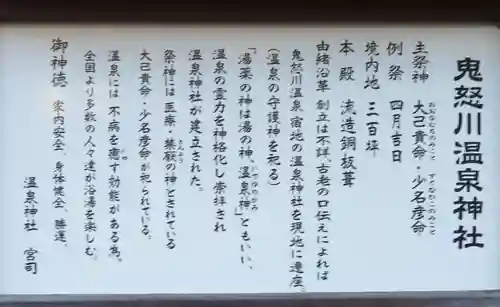 鬼怒川温泉神社
主祭神　大己貴命・少名彦命
おおなむちのみこと　すくなひこのみこと
例祭　四月吉日
境内地　三百坪
本殿　流造銅板葺
由緒沿革　創立は不詳、古老の口伝えによれば
鬼怒川温泉宿地の温泉神社を現地に遷座。
(温泉の守護神を祀る)
「湯薬の神は湯の神、温泉神」ともいい、
いでゆのかみ
温泉の霊力を神格化し崇拝され
温泉神社が建立された。
祭神には医療・禁厭の神とされている
大己貴命・少名彦命が祀られている。
温泉には不病を癒す効能がある為、
全国より多数の人々達が浴湯を楽しむ。
御神徳　家内安全、身体健全、勝運、
温泉神社　宮司